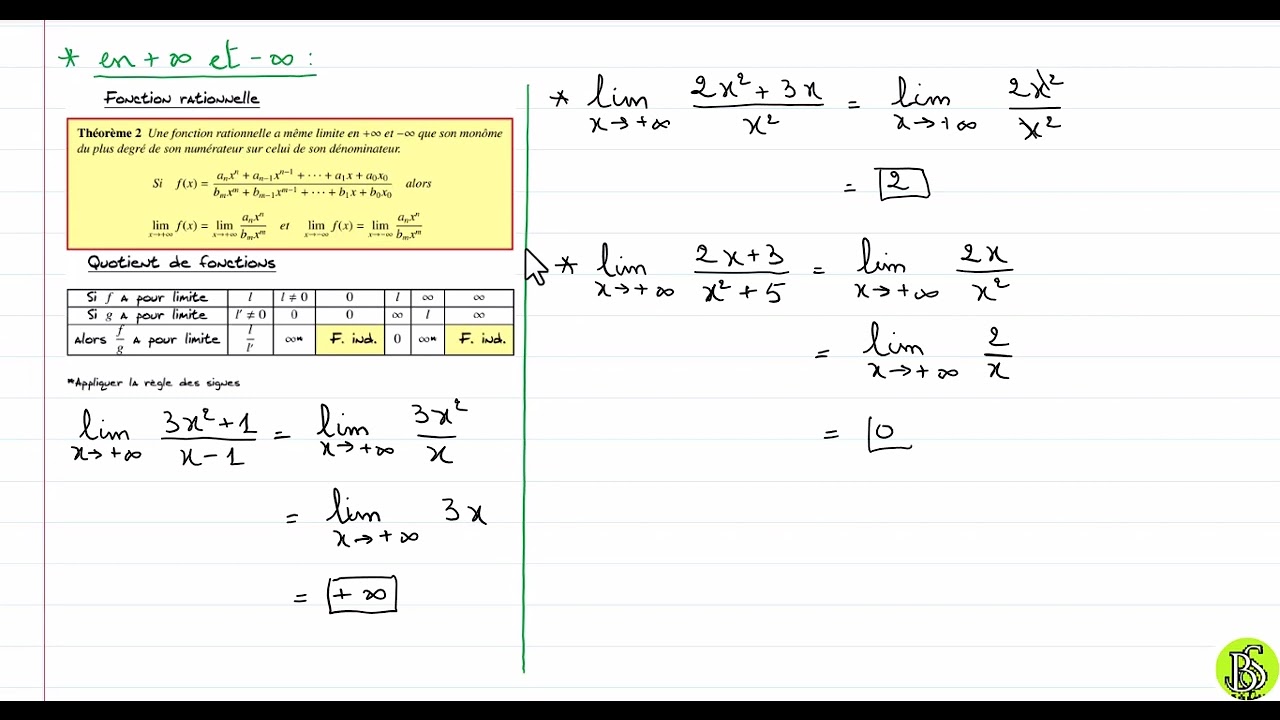 * en +∞ et -∞ :
Fonction rationnelle
Théorème 2 Une fonction rationnelle a même limite en +∞ et −∞ que son monôme
du plus degré de son numérateur sur celui de son dénominateur.
Si f(x) = (aₙxⁿ + aₙ₋₁xⁿ⁻¹ + ⋯ + a₁x + a₀x₀)/(bₘxᵐ + bₘ₋₁xᵐ⁻¹ + ⋯ + b₁x + b₀x₀) alors
lim x→+∞ f(x) = lim x→+∞ aₙxⁿ/bₘxᵐ et lim x→−∞ f(x) = lim x→−∞ aₙxⁿ/bₘxᵐ
Quotient de fonctions
Si f a pour limite l l ≠ 0 0 l ∞ ∞
Si g a pour limite l' ≠ 0 0 0 ∞ l ∞
Alors f/g a pour limite l/l' ∞* F. ind. 0 ∞* F. ind.
*Appliquer la règle des signes
lim x→+∞ (3x²+1)/(x-1) = lim x→+∞ 3x²/x
= lim x→+∞ 3x
= +∞
* lim x→+∞ (2x²+3x)/x² = lim x→+∞ 2x²/x²
= 2
* lim x→+∞ (2x+3)/(x²+5) = lim x→+∞ 2x/x²
= lim x→+∞ 2/x
= 0
BS